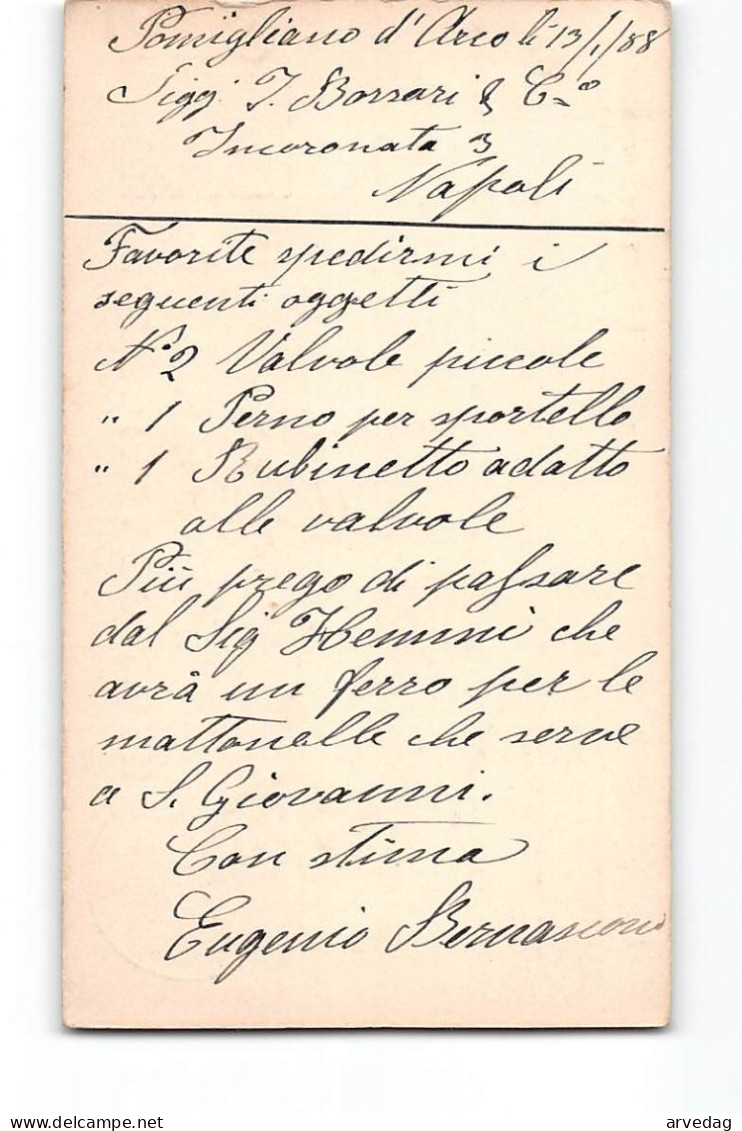 Pomigliano d'Arco li 13/1/88
Sigg. I. Borrari & Co
Incoronata 3
Napoli
Favorite spedirmi i
seguenti oggetti
No 2 Valvole piccole
" 1 Perno per sportello
" 1 Rubinetto adatto
alle valvole
Più prego di passare
dal Sig Hemmi che
avrà un ferro per le
mattonelle che serve
a S. Giovanni.
Con stima
Eugenio Bernasconi
delcampe.net
arvedag